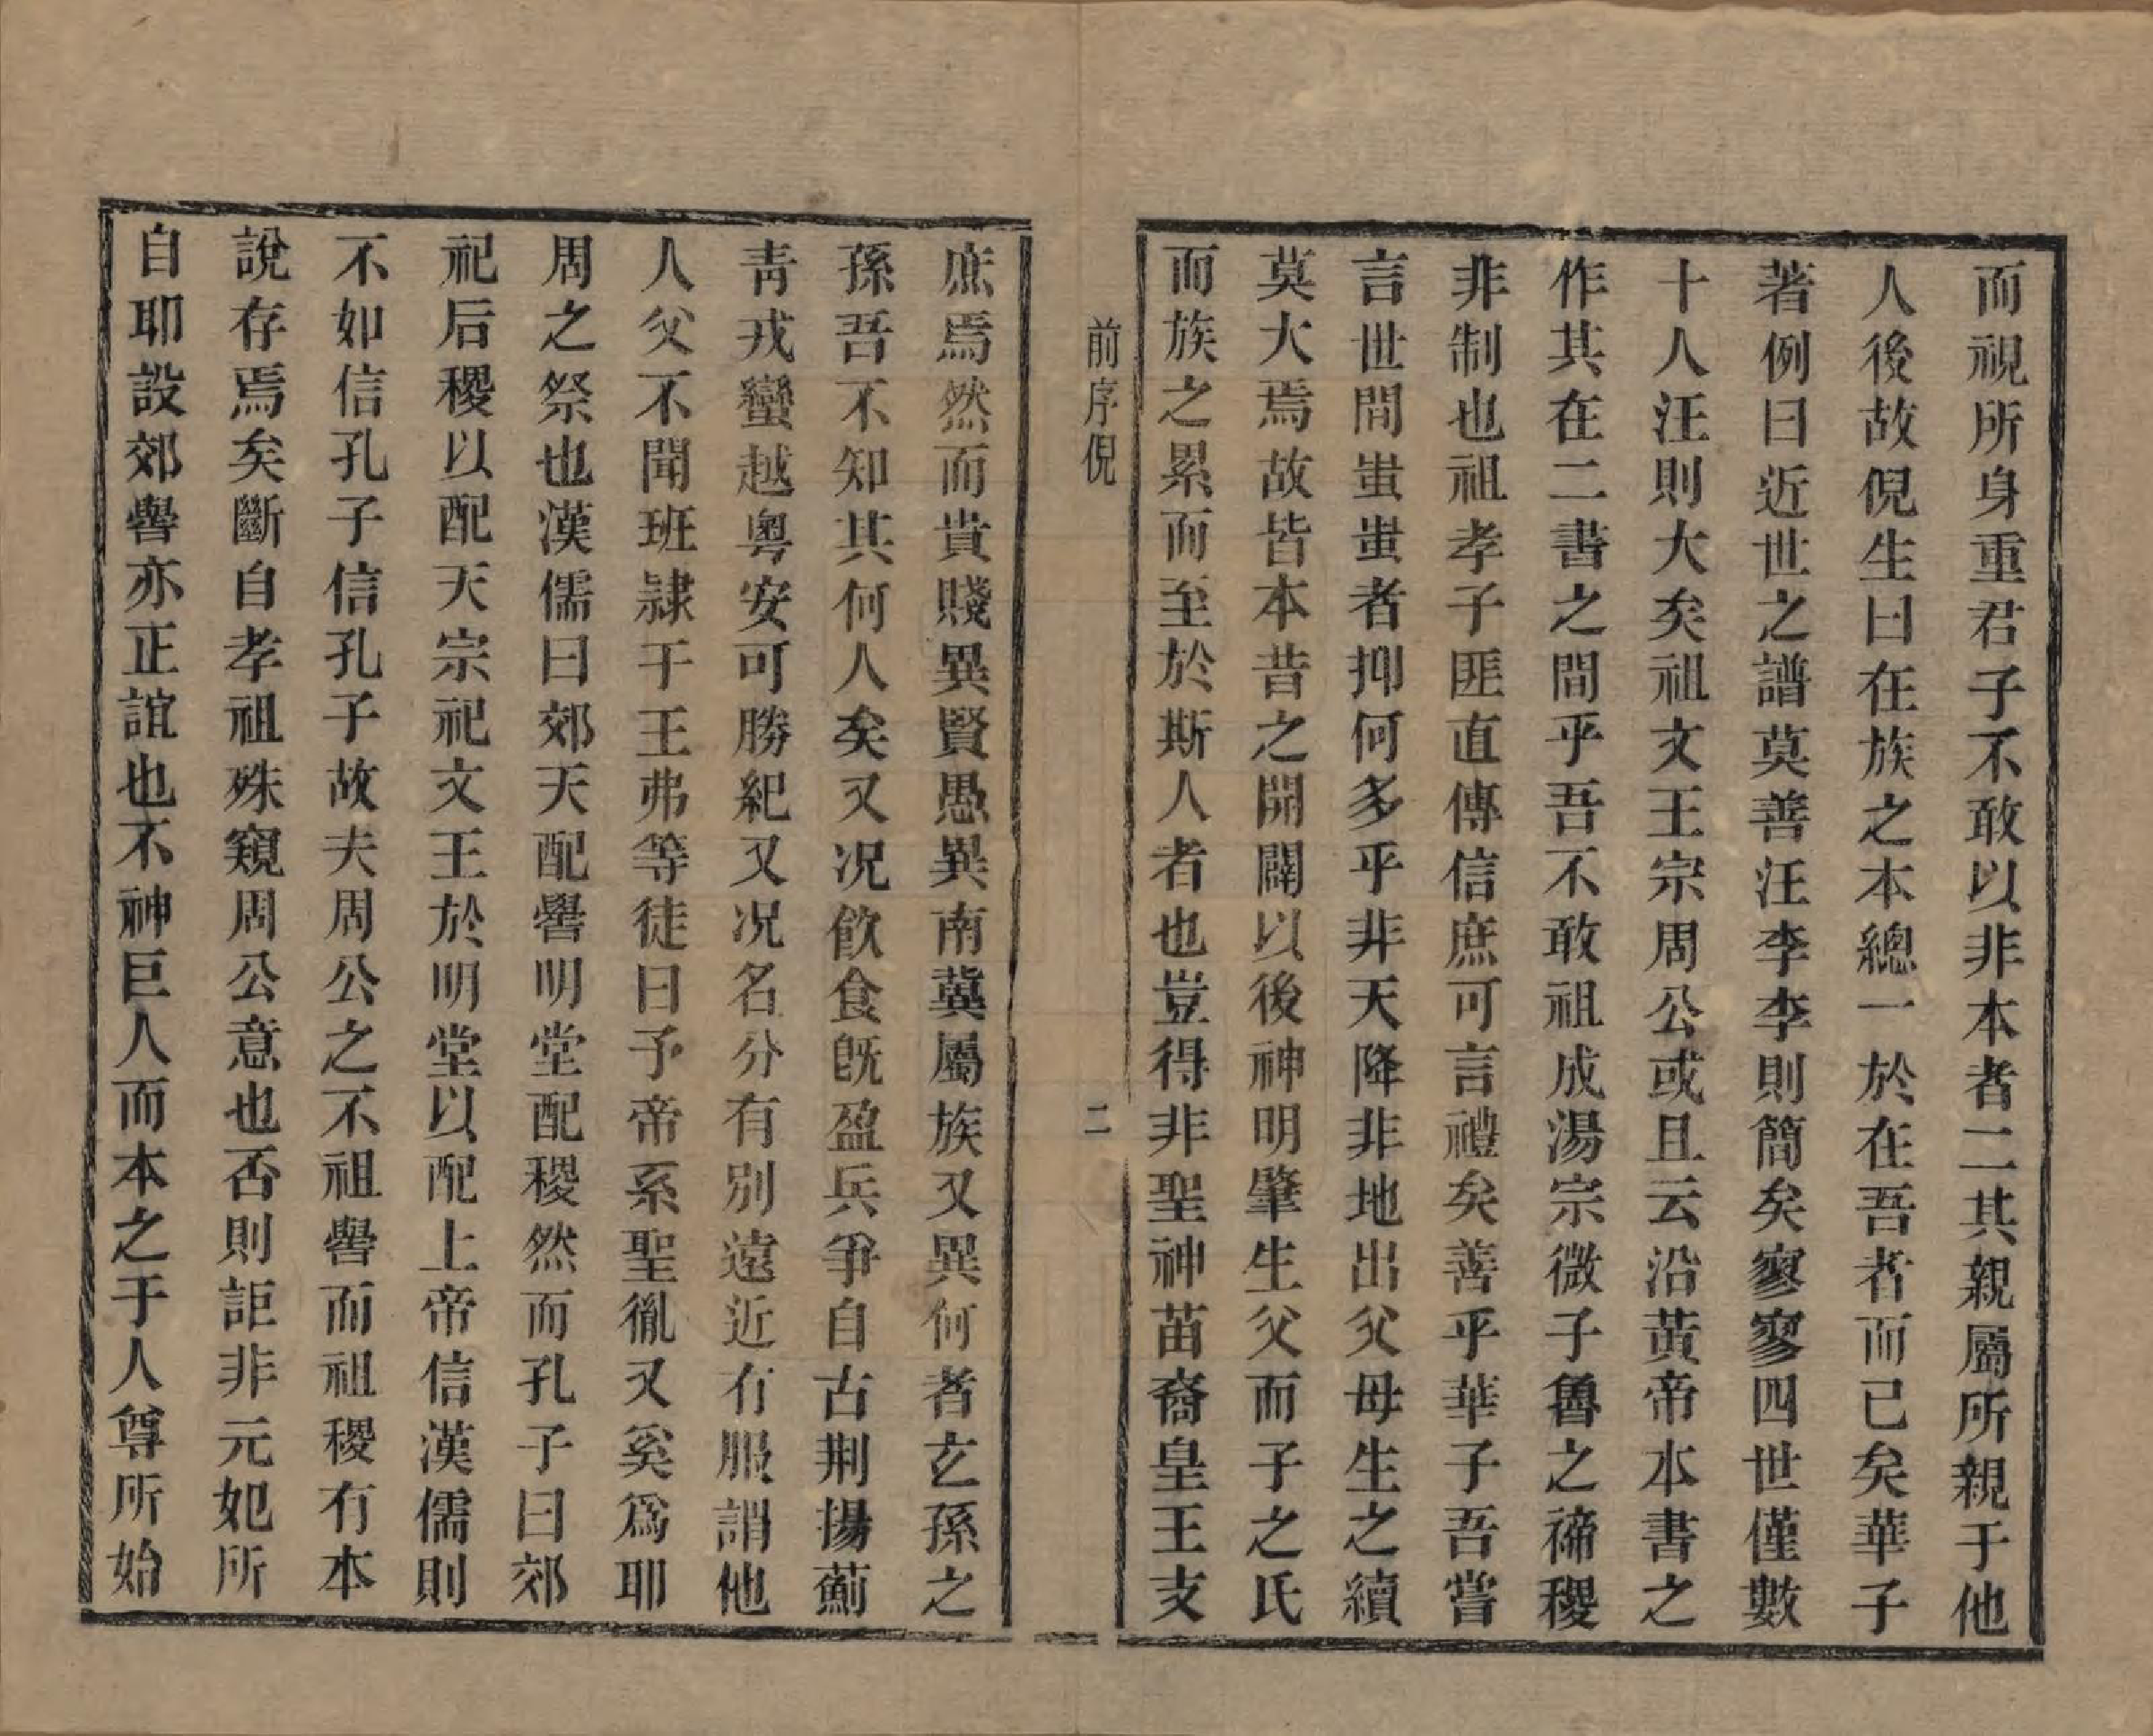 而視所身重君子不敢以非本者二其親屬所親于他
人後故倪生曰在族之本總一於在吾者而已矣華子
著例曰近世之譜莫善汪李李則簡矣寥寥四世僅數
十人汪則大矣祖文王宗周公或且云沿黃帝本書之
作其在二書之間乎吾不敢祖成湯宗微子魯之禘稷
非制也祖孝子匪直傳信庶可言禮矣善乎華子吾嘗
言世間蚩蚩者抑何多乎非天降非地出父母生之續
莫大焉故皆本昔之開闢以後神明肇生父而子之氏
而族之累而至於斯人者也豈得非聖神苗裔皇王支
前序倪
二
庶焉然而貴賤異賢愚異南冀屬族又異何者玄孫之
孫吾不知其何人矣又況飲食旣盈兵爭自古荆揚薊
靑戎蠻越粵安可勝紀又況名分有別遠近有服謂他
人父不聞班隷于王弗等徒曰予帝系聖胤又奚爲耶
周之祭也漢儒曰郊天配嚳明堂配稷然而孔子曰郊
祀后稷以配天宗祀文王於明堂以配上帝信漢儒則
不如信孔子信孔子故夫周公之不祖嚳而祖稷有本
說存焉矣斷自孝祖殊窺周公意也否則詎非元妃所
自耶設郊嚳亦正誼也不神巨人而本之于人尊所始